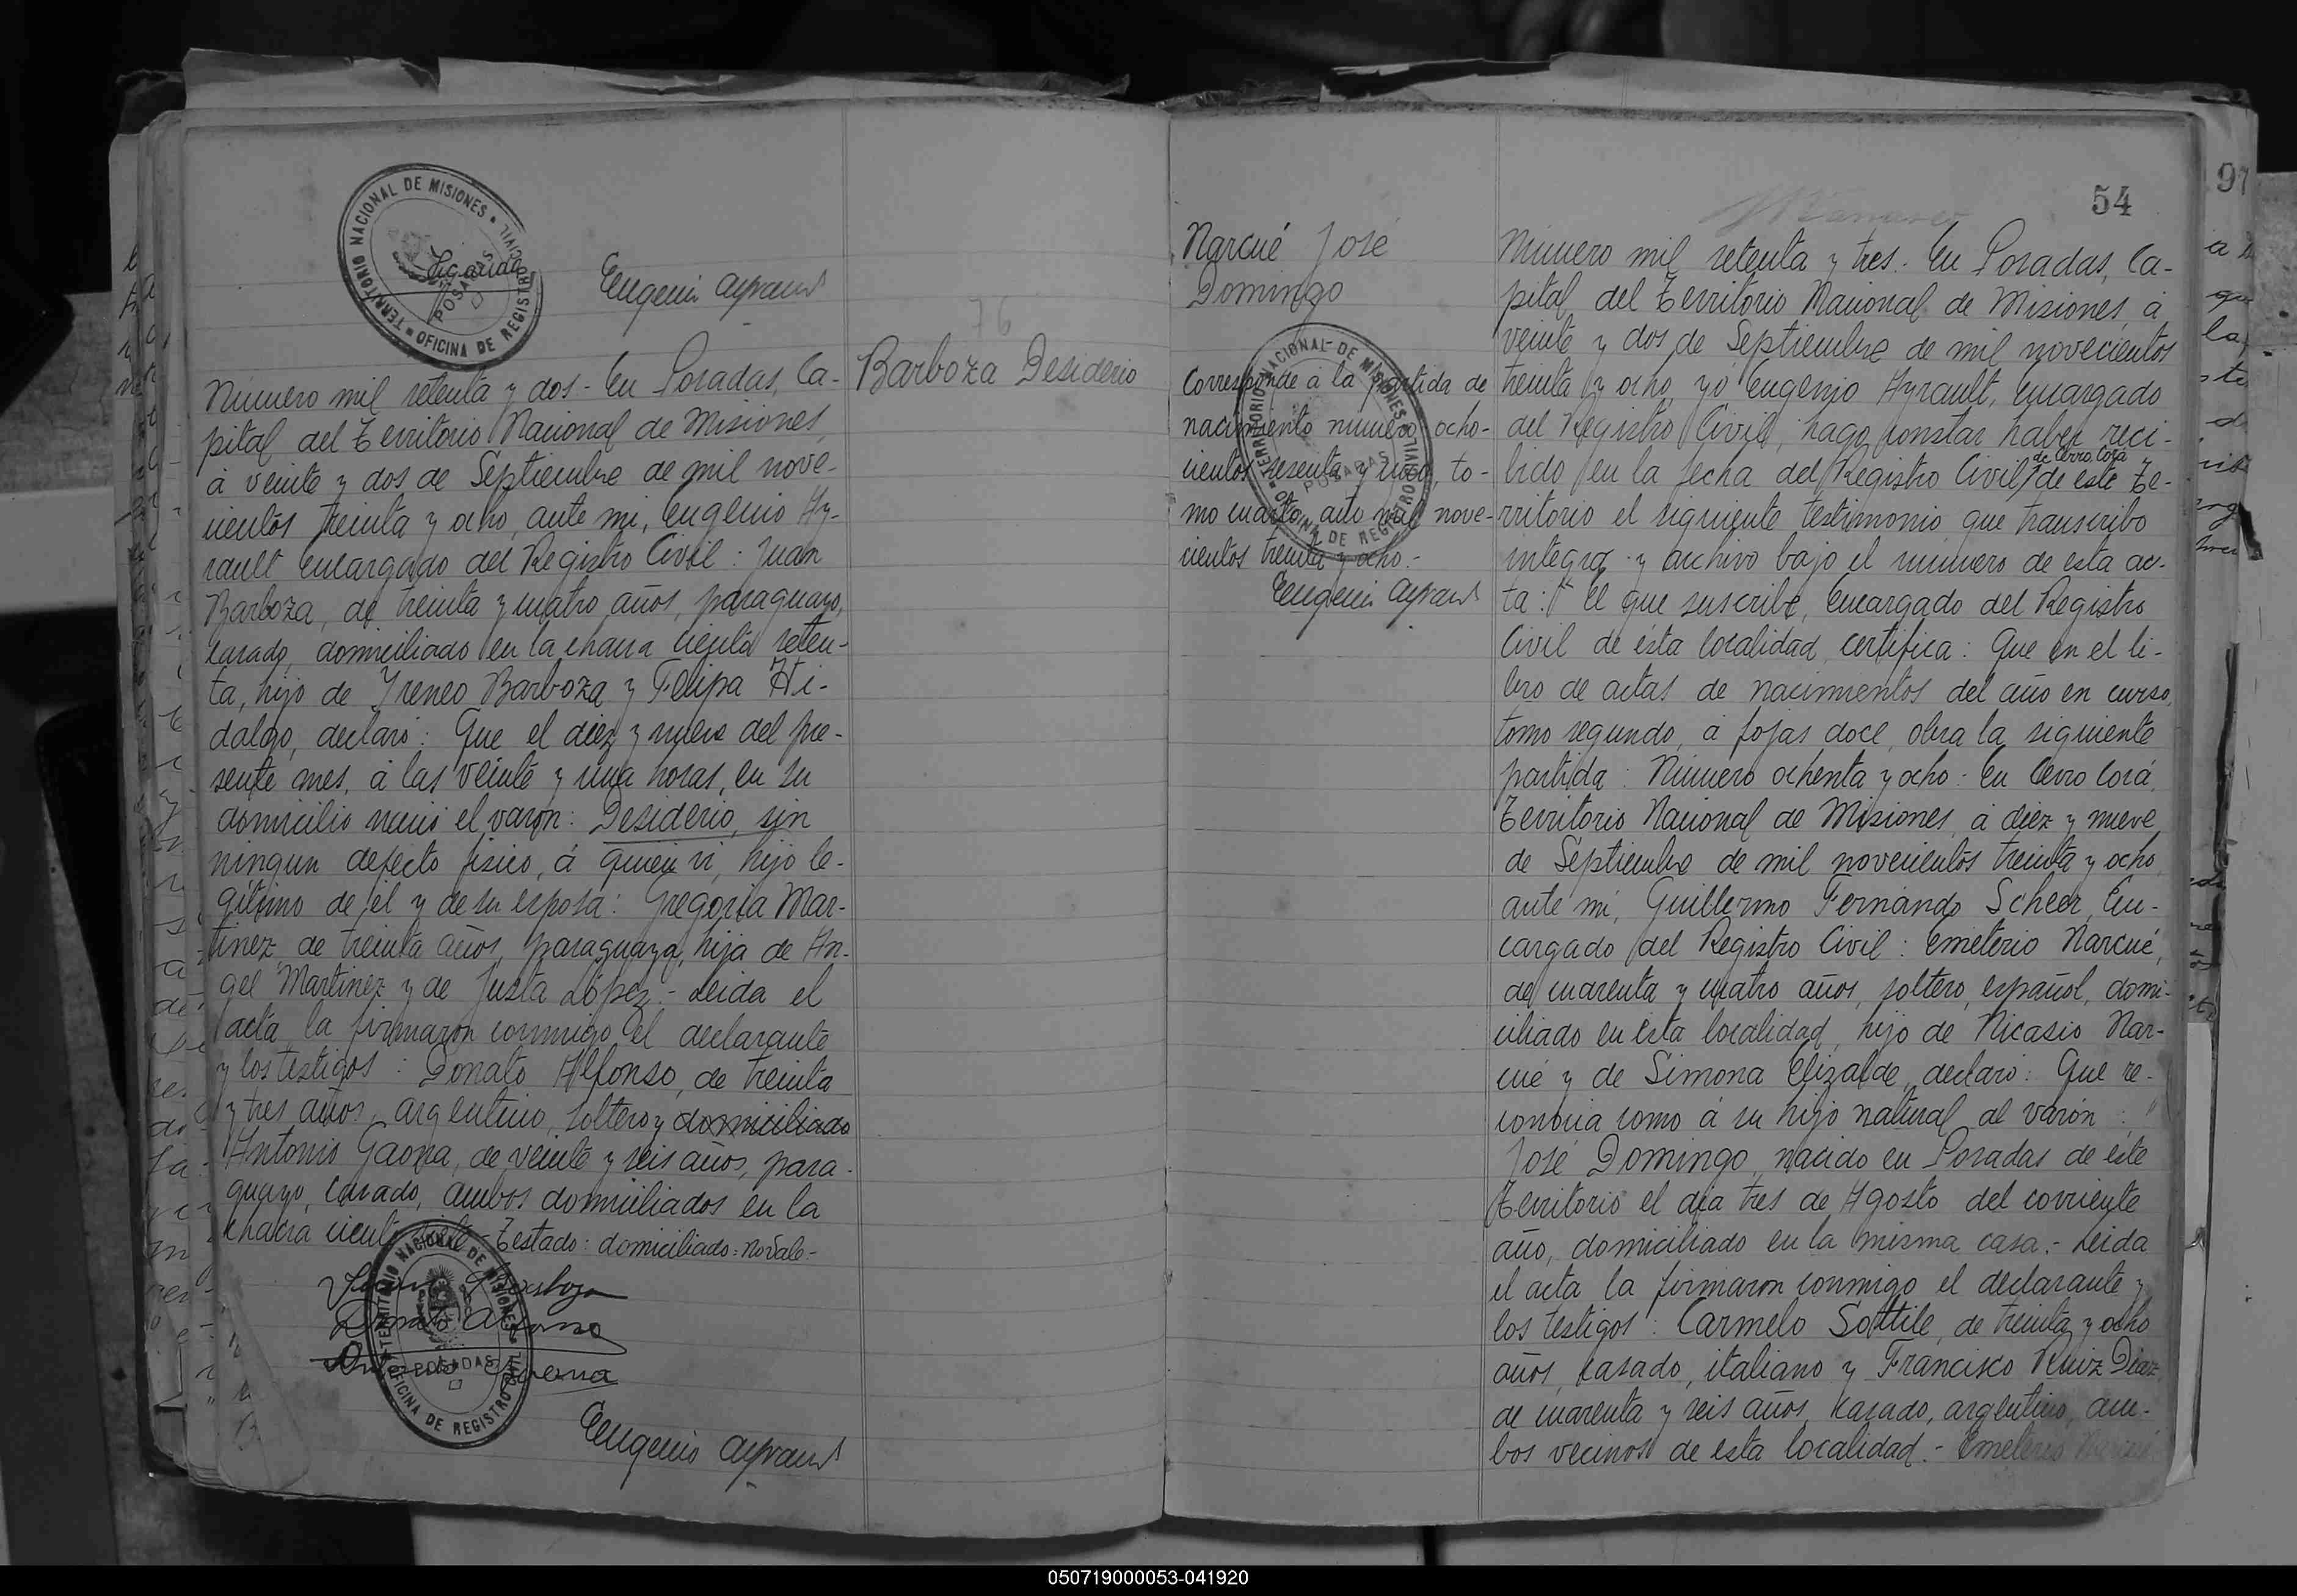 TERRITORIO NACIONAL DE MISIONES
OFICINA DE REGISTRO CIVIL
POSADAS
Eugenio Ayrault
76
Barboza Desiderio
Número mil setenta y dos.- En Posadas, Ca-
pital del Territorio Nacional de Misiones,
á veinte y dos de Septiembre de mil nove-
cientos treinta y ocho, ante mi, Eugenio Ay-
rault Encargado del Registro Civil: Juan
Barboza, de treinta y cuatro años, paraguayo,
casado, domiciliado en la chacra ciento seten-
ta, hijo de Yreneo Barboza y Felipa Hi-
dalgo, declaró: Que el diez y nueve del pre-
sente mes, á las veinte y una horas, en su
domicilio nació el varón: Desiderio, sin
ningun defecto físico, á quien vi, hijo le-
gítimo de él y de su esposa: Gregoria Mar-
tinez, de treinta años, paraguaya, hija de An-
gel Martinez y de Justa López.- Leida el
acta la firmaron conmigo el declarante
y los testigos: Donato Alfonso, de treinta
y tres años, argentino, soltero y domiciliado
Antonio Gaona, de veinte y seis años, para-
guayo, casado, ambos domiciliados en la
chacra ciento siete.- Testado: domiciliado: no vale.-
Juan Barboza
Donato Alfonso
Antonio Gaona
TERRITORIO NACIONAL DE MISIONES
OFICINA DE REGISTRO CIVIL
POSADAS
Eugenio Ayrault
54
97
Narcué José
Domingo
TERRITORIO NACIONAL DE MISIONES
OFICINA DE REGISTRO CIVIL
POSADAS
Corresponde á la partida de
nacimiento número ocho-
cientos sesenta y , to-
mo cuarto, año mil nove-
cientos treinta y ocho.-
Eugenio Ayrault
Número mil setenta y tres.- En Posadas, Ca-
pital del Territorio Nacional de Misiones, á
veinte y dos de Septiembre de mil novecientos
treinta y ocho, yó Eugenio Ayrault, Encargado
del Registro Civil, hago constar haber reci-
de Cerro Corá
bido en la fecha del Registro Civil de este Te-
rritorio el siguiente testimonio que transcribo
integro y archivo bajo el número de esta ac-
ta: "El que suscribe, Encargado del Registro
Civil de ésta localidad, certifica: Que en el li-
bro de actas de nacimientos del año en curso,
tomo segundo, á fojas doce, obra la siguiente
partida: Número ochenta y ocho.- En Cerro Corá,
Territorio Nacional de Misiones, á diez y nueve
de Septiembre de mil novecientos treinta y ocho,
ante mi, Guillermo Fernando Scheer, En-
cargado del Registro Civil: Emeterio Narcué,
de cuarenta y cuatro años, soltero, español, domi-
ciliado en esta localidad, hijo de Nicasio Nar-
cué y de Simona Elizalde, declaró: Que re-
conocia como á su hijo natural al varón: "
José Domingo, nacido en Posadas de este
Territorio el día tres de Agosto del corriente
año, domiciliado en la misma casa.- Leida
el acta la firmaron conmigo el declarante y
los testigos: Carmelo Sottile, de treinta y ocho
años, casado, italiano y Francisco Ruiz Diaz,
de cuarenta y seis años, casado, argentino, am-
bos vecinos de esta localidad.- Emeterio Narcué
050719000053-041920